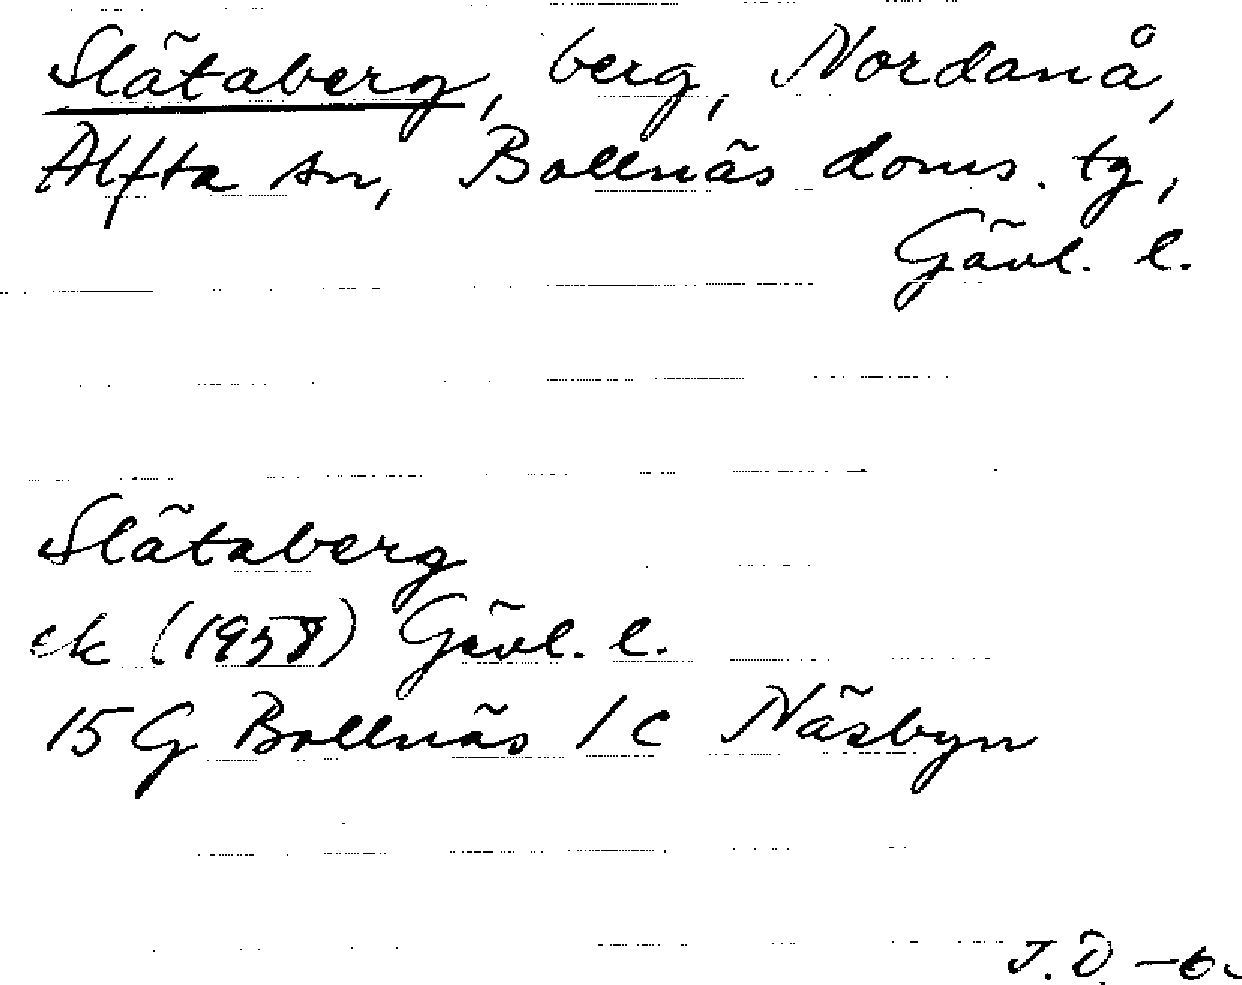 Slätaberg, berg, Nordanå,
Alfta sn, Bollnäs doms. tg,
Gävl. l.
Slätaberg
ek (1958) Gävl. l.
15 G Bollnäs 1 c Näsbyn
J. Ö.